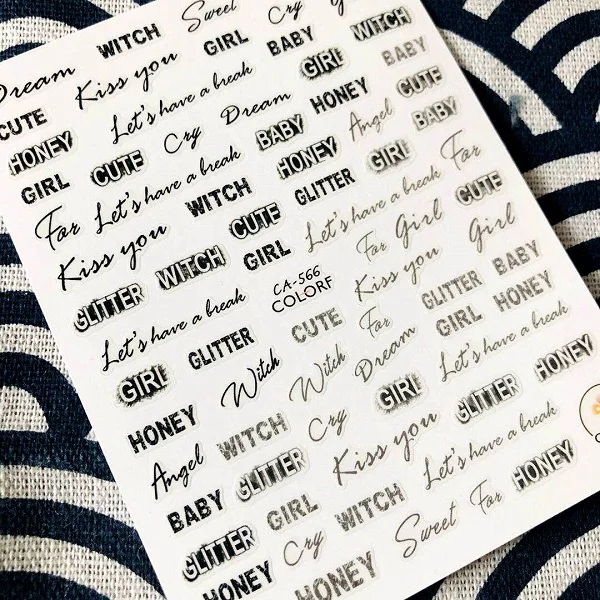 Sweet Cry
Dream WITCH GIRL BABY WITCH
CUTE Kiss you GIRL BABY
HONEY Let's have a break HONEY CUTE
GIRL CUTE Cry Dream BABY Angel BABY
For Let's have a break HONEY GIRL For
Kiss you WITCH GLITTER Let's have a break CUTE
GLITTER WITCH CUTE GIRL For Girl Girl
Let's have a break CA-566 Kiss you BABY
COLORF
GIRL GLITTER CUTE For GLITTER HONEY
HONEY Witch Witch Dream GIRL Let's have a break
Angel WITCH Cry GIRL GLITTER HONEY
BABY GLITTER Kiss you Let's have a break
GLITTER GIRL Cry WITCH Sweet For HONEY
HONEY HONEY